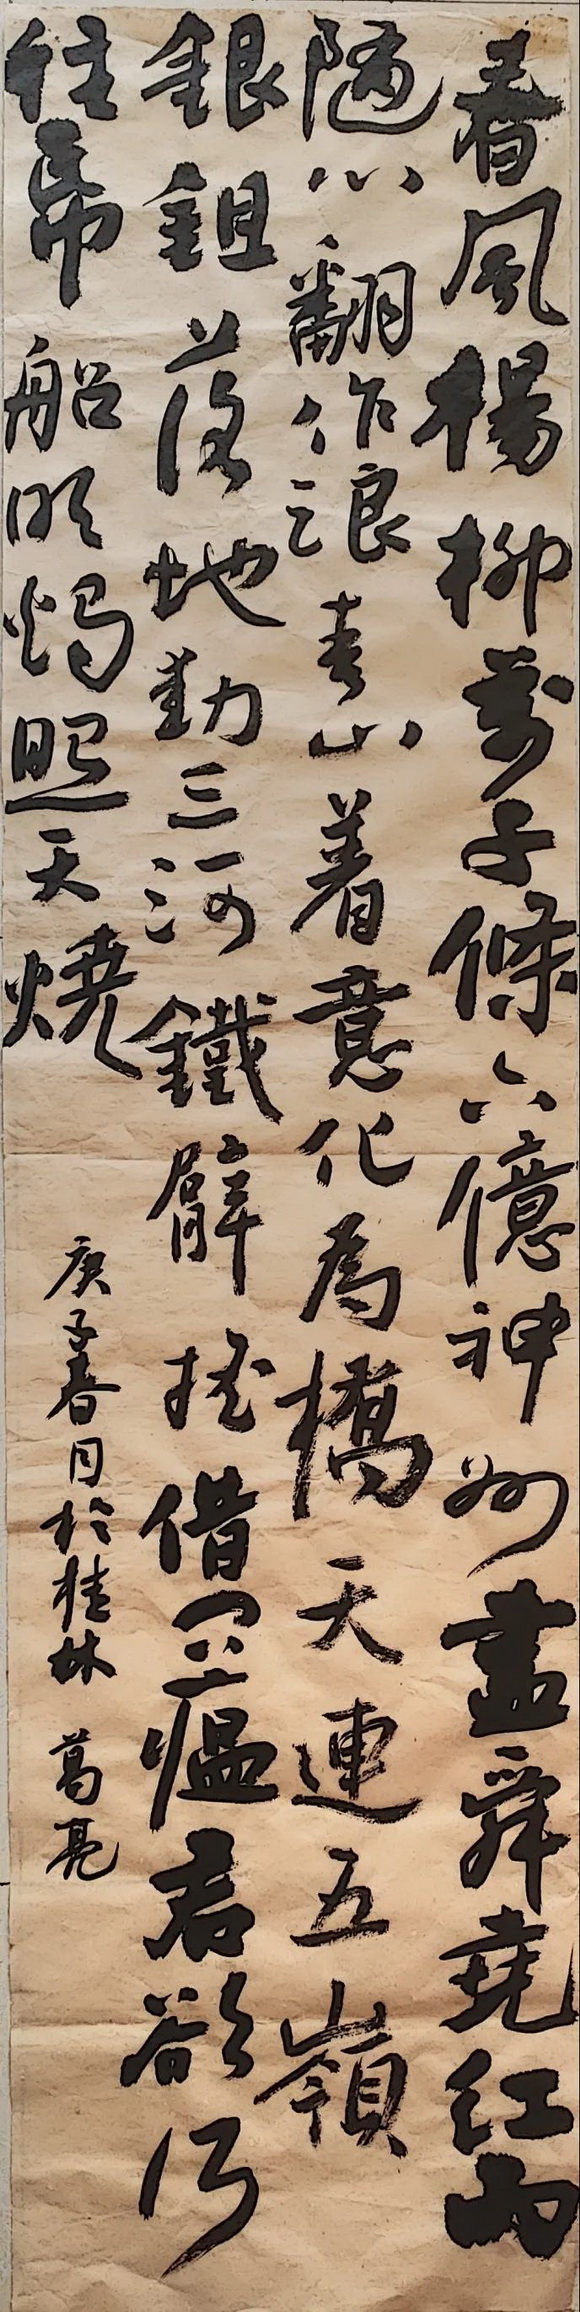 春風楊柳萬千條六億神州盡舜堯紅雨
隨心翻作浪青山着意化為橋天連五嶺
銀鉏落地動三河鐵臂搖借問瘟君欲何
往帋船明燭照天燒
庚子春月於桂林 葛亮